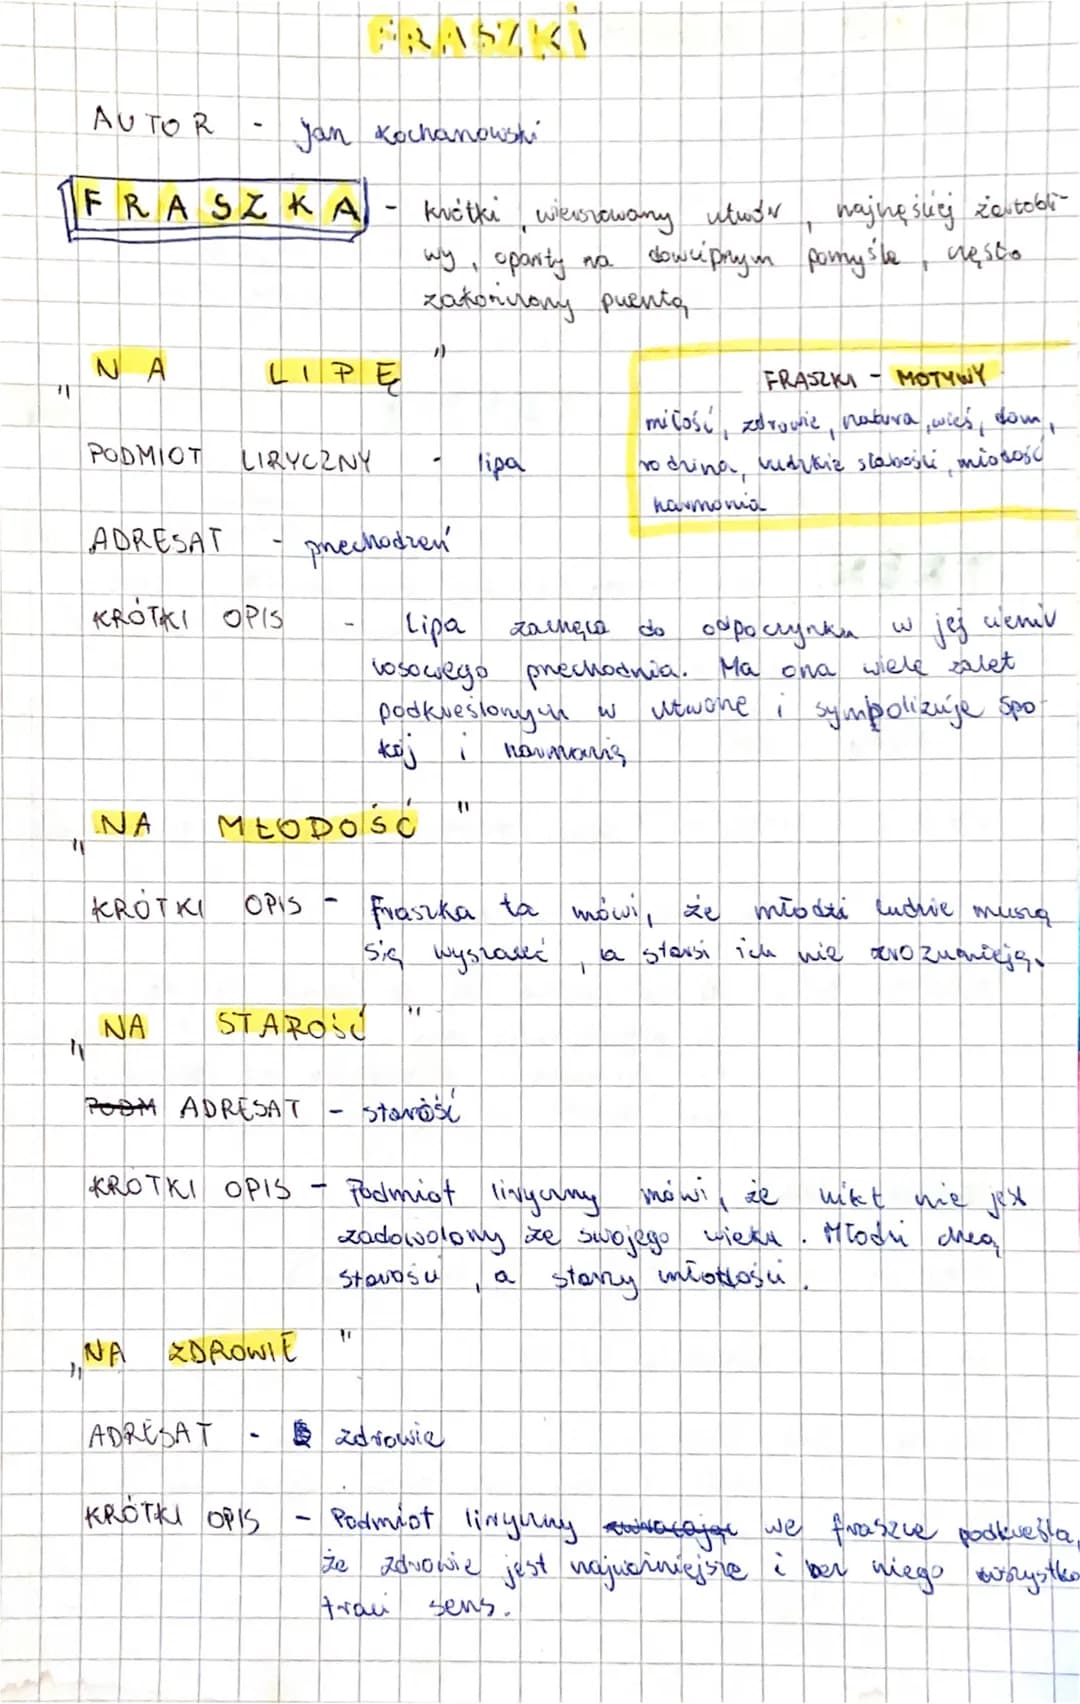 FRASZKI
AUTOR - Jan Kochanowski
FRASZKA - krótki, wierszowany utwór, najczęściej żartobli-
wy, oparty na dowcipnym pomyśle, często
zakończony puentą
"NA LIPĘ"
FRASZKI - MOTYWY
miłość, zdrowie, natura, wieś, dom,
rodzina, ludzkie słabości, młodość
harmonia
PODMIOT LIRYCZNY - lipa
ADRESAT - przechodzeń
KRÓTKI OPIS - Lipa zachęca do odpoczynku w jej cieniu
losowego przechodnia. Ma ona wiele zalet
podkreślonych w utworze i symbolizuje spo-
kój i harmonię
"NA MŁODOŚĆ"
KRÓTKI OPIS - Fraszka ta mówi, że młodzi ludzie muszą
się wyszaleć, a starsi ich nie zrozumieją.
"NA STAROŚĆ"
PODM ADRESAT - starość
KRÓTKI OPIS - Podmiot liryczny mówi, że nikt nie jest
zadowolony ze swojego wieku. Młodzi chcą
starości, a starzy młodości.
"NA ZDROWIE"
ADRESAT - zdrowie
KRÓTKI OPIS - Podmiot liryczny zwracając we fraszce podkreśla,
że zdrowie jest najważniejsze i bez niego wszystko
traci sens.